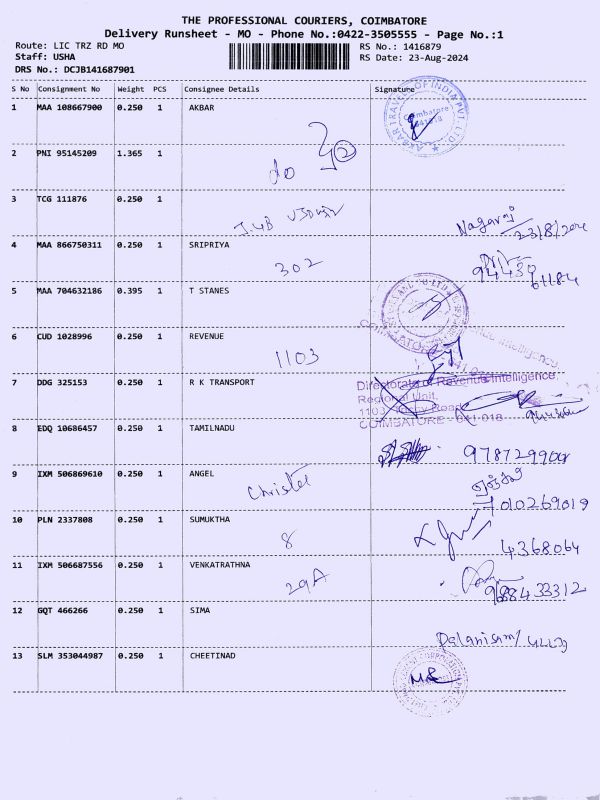 THE PROFESSIONAL COURIERS, COIMBATORE
Delivery Runsheet - MO - Phone No.:0422-3505555 - Page No.:1
Route: LIC TRZ RD MO
RS No.: 1416879
Staff: USHA
RS Date: 23-Aug-2024
DRS No.: DCJB141687901
S No Consignment No Weight PCS Consignee Details Signature
1 MAA 108667900 0.250 1 AKBAR
AKBAR TRAVELS OF INDIA PVT. LTD.
Coimbatore
641018
2 PNI 95145209 1.365 1
do
3 TCG 111876 0.250 1
Nagaraj
23/8/2024
4 MAA 866750311 0.250 1 SRIPRIYA
302
94430
61184
5 MAA 704632186 0.395 1 T STANES
6 CUD 1028996 0.250 1 REVENUE
1103
7 DDG 325153 0.250 1 R K TRANSPORT
Directorate of Revenue Intelligence,
Regional Unit,
1103, Road,
COIMBATORE - 641 018
8 EDQ 10686457 0.250 1 TAMILNADU
9 IXM 506869610 0.250 1 ANGEL
7010269019
10 PLN 2337808 0.250 1 SUMUKTHA
8
4368064
11 IXM 506687556 0.250 1 VENKATRATHNA
29A
9688433312
12 GQT 466266 0.250 1 SIMA
Palanisamy
13 SLM 353044987 0.250 1 CHEETINAD